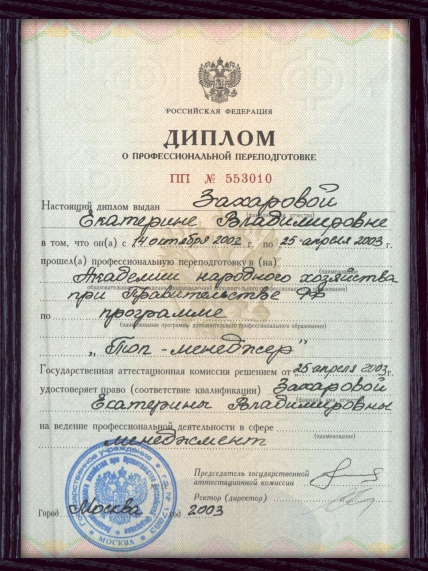 РОССИЙСКАЯ ФЕДЕРАЦИЯ
ДИПЛОМ
О ПРОФЕССИОНАЛЬНОЙ ПЕРЕПОДГОТОВКЕ
ПП № 553010
Настоящий диплом выдан Захаровой
Екатерине Владимировне
в том, что он(а) с 14 октября 2002 г. по 25 апреля 2003 г.
прошел(а) профессиональную переподготовку в (на)
Академии народного хозяйства
при Правительстве РФ
по программе
(наименование программы дополнительного профессионального образования)
„Топ-менеджер"
Государственная аттестационная комиссия решением от 25 апреля 2003 г.
удостоверяет право (соответствие квалификации) Захаровой
Екатерины Владимировны
на ведение профессиональной деятельности в сфере
менеджмент (наименование)
Председатель государственной
аттестационной комиссии
Ректор (директор)
Город Москва год 2003
МОСКВА